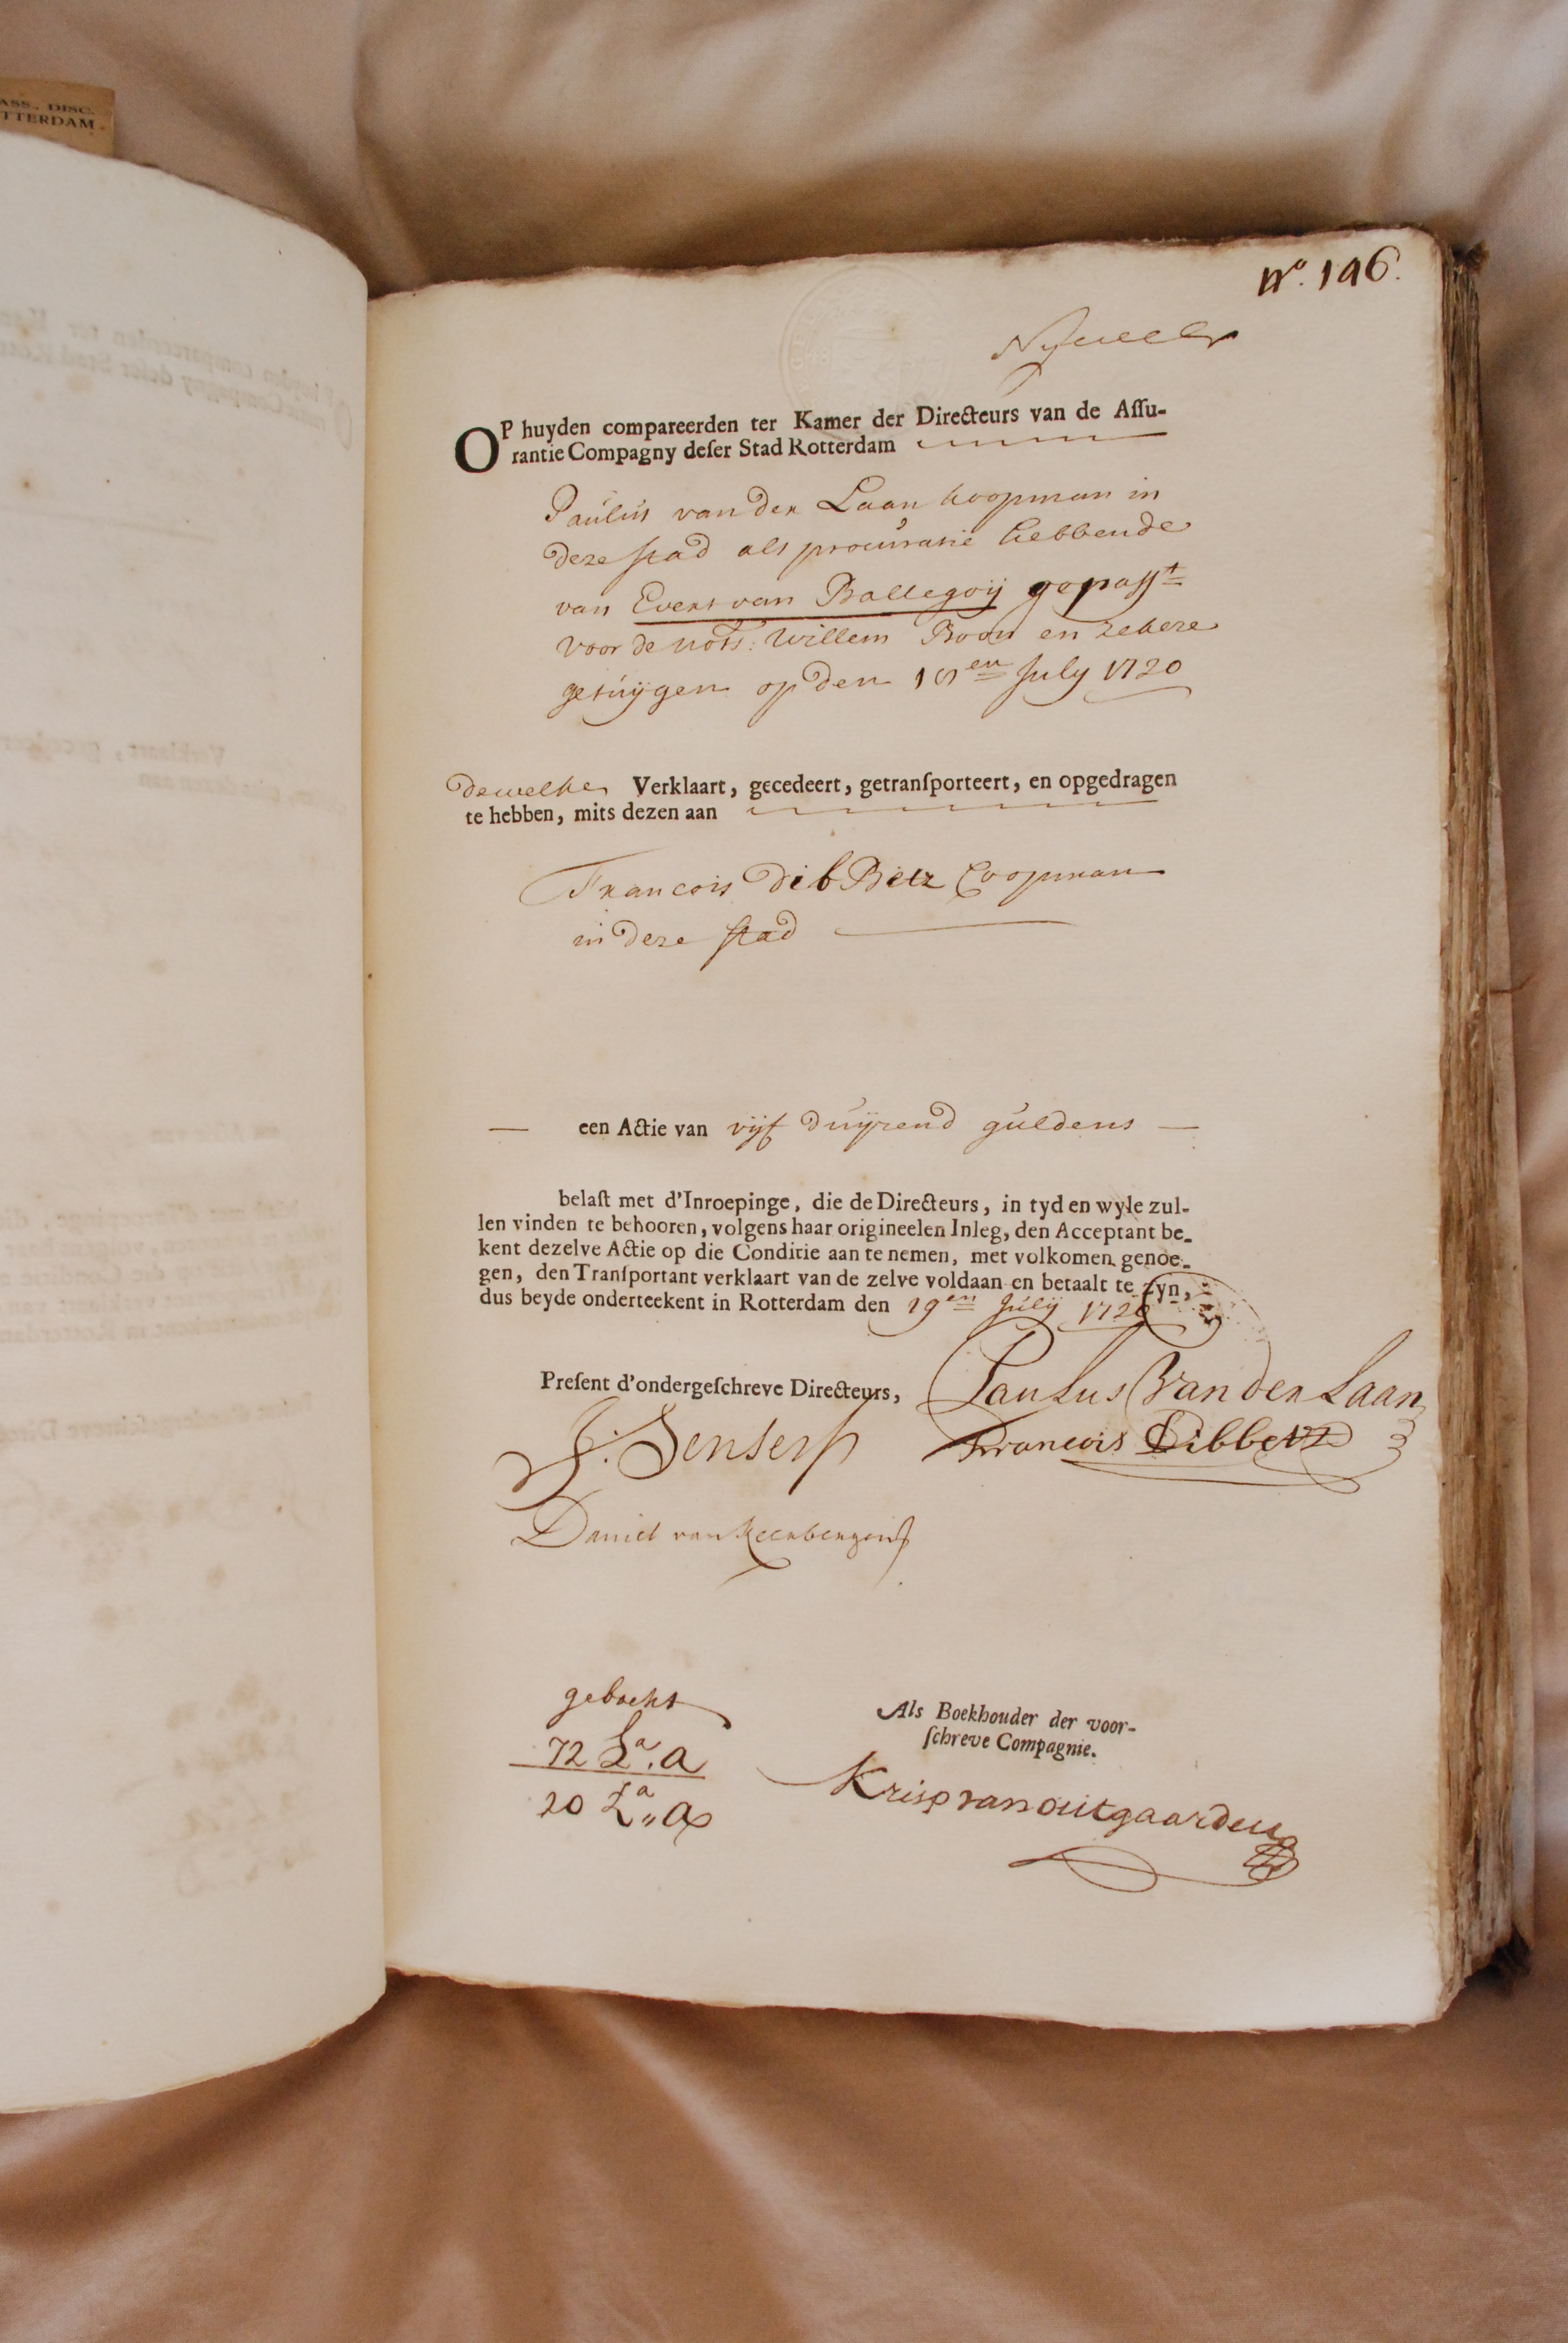 ASS., DISC.
TTERDAM
No. 196.
OP huyden compareerden ter Kamer der Directeurs van de Assu-
rantie Compagny deser Stad Rotterdam
Paulus van der Laan koopman in
deze stad als procuratie hebbende
van Evert van Ballegoij gepasst
voor de nots: Willem Boon en zekere
getuijgen op den en July 1720
dewelke Verklaart, gecedeert, getransporteert, en opgedragen
te hebben, mits dezen aan
Francois dibBetz Coopman
in deze stad
een Actie van vijf duijzend guldens
belast met d'Inroepinge, die de Directeurs, in tyd en wyle zul-
len vinden te behooren, volgens haar origineelen Inleg, den Acceptant be-
kent dezelve Actie op die Conditie aan te nemen, met volkomen genoe-
gen, den Transportant verklaart van de zelve voldaan en betaalt te zyn,
dus beyde onderteekent in Rotterdam den 19en July 1720
Present d'ondergeschreve Directeurs, Paulus Van der Laan
J. Senserff Francois Dibbetz
Daniel van
geboekt
72 La. a
20 La. a
Als Boekhouder der voor-
schreve Compagnie.
Krisp van outgaarden